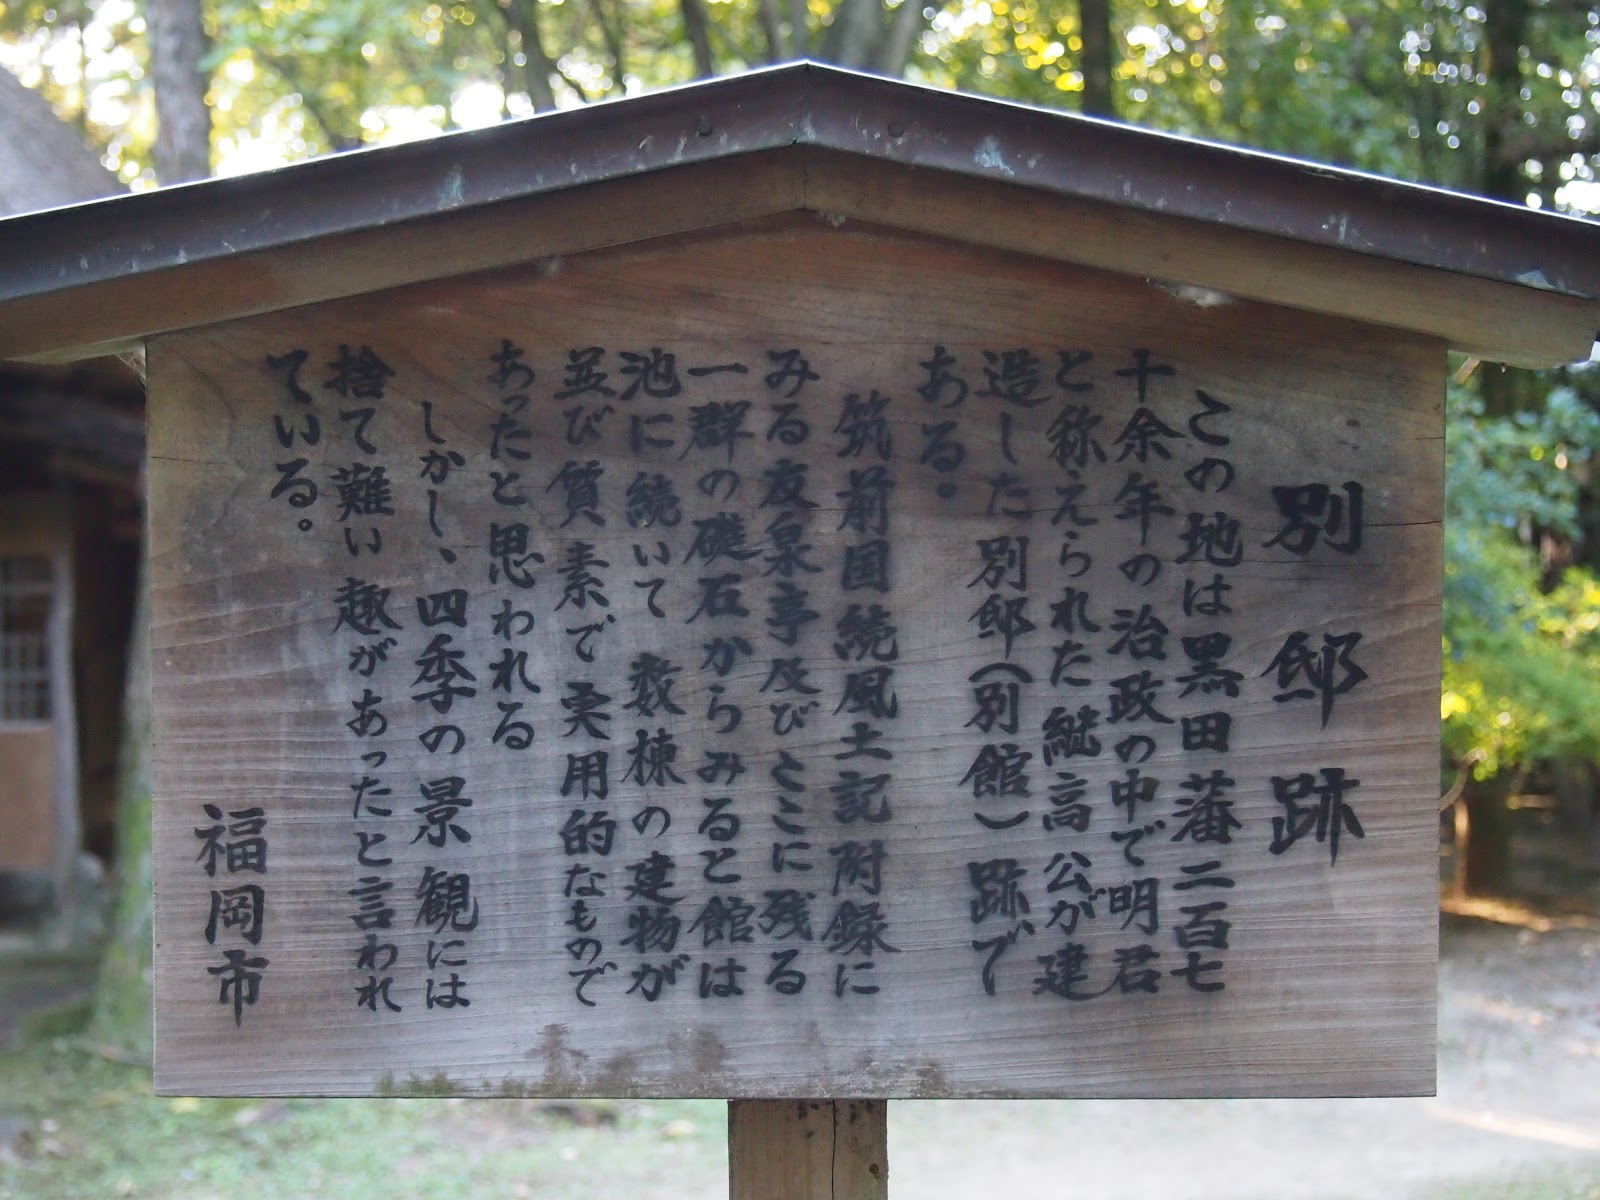 別邸跡
この地は黒田藩二百七
十余年の治政の中で明君
と称えられた継高公が建
造した別邸(別館)跡で
ある。
筑前国続風土記附録に
みる友泉亭及びとこに残る
一群の礎石からみると館は
池に続いて数棟の建物が
並び質素で実用的なもので
あったと思われる
しかし、四季の景観には
捨て難い趣があったと言われ
ている。
福岡市